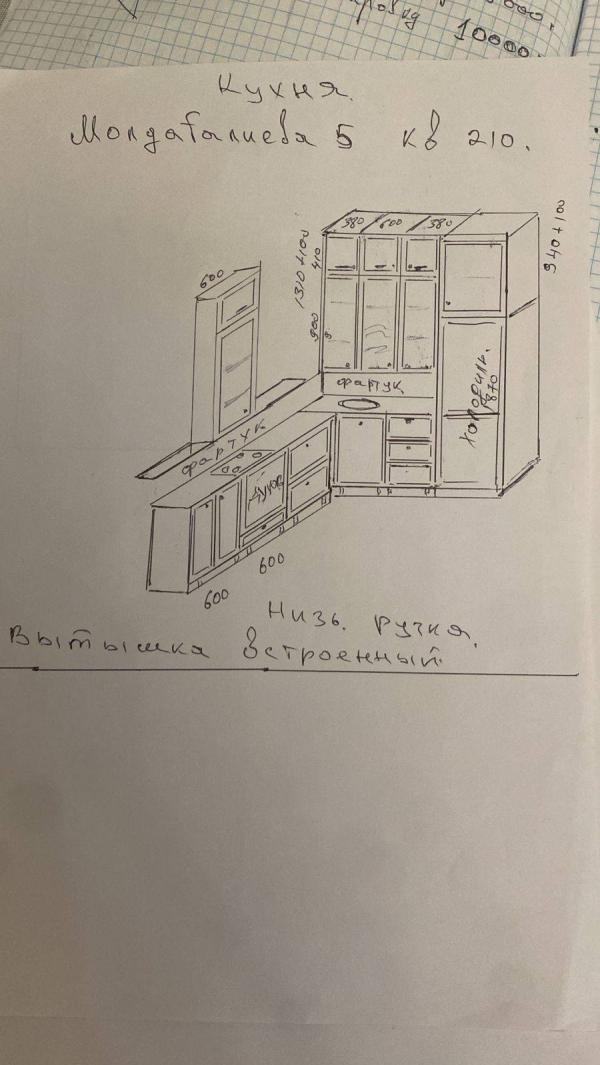 0000.
10000.
Кухня.
Молдагалиева 5 кв 210.
380 600 380
940+100
1310+100
410
600
900
фартук
холодильн.
1870
фартук
духов
600
600
Низь. ручка.
Вытышка встроенный.